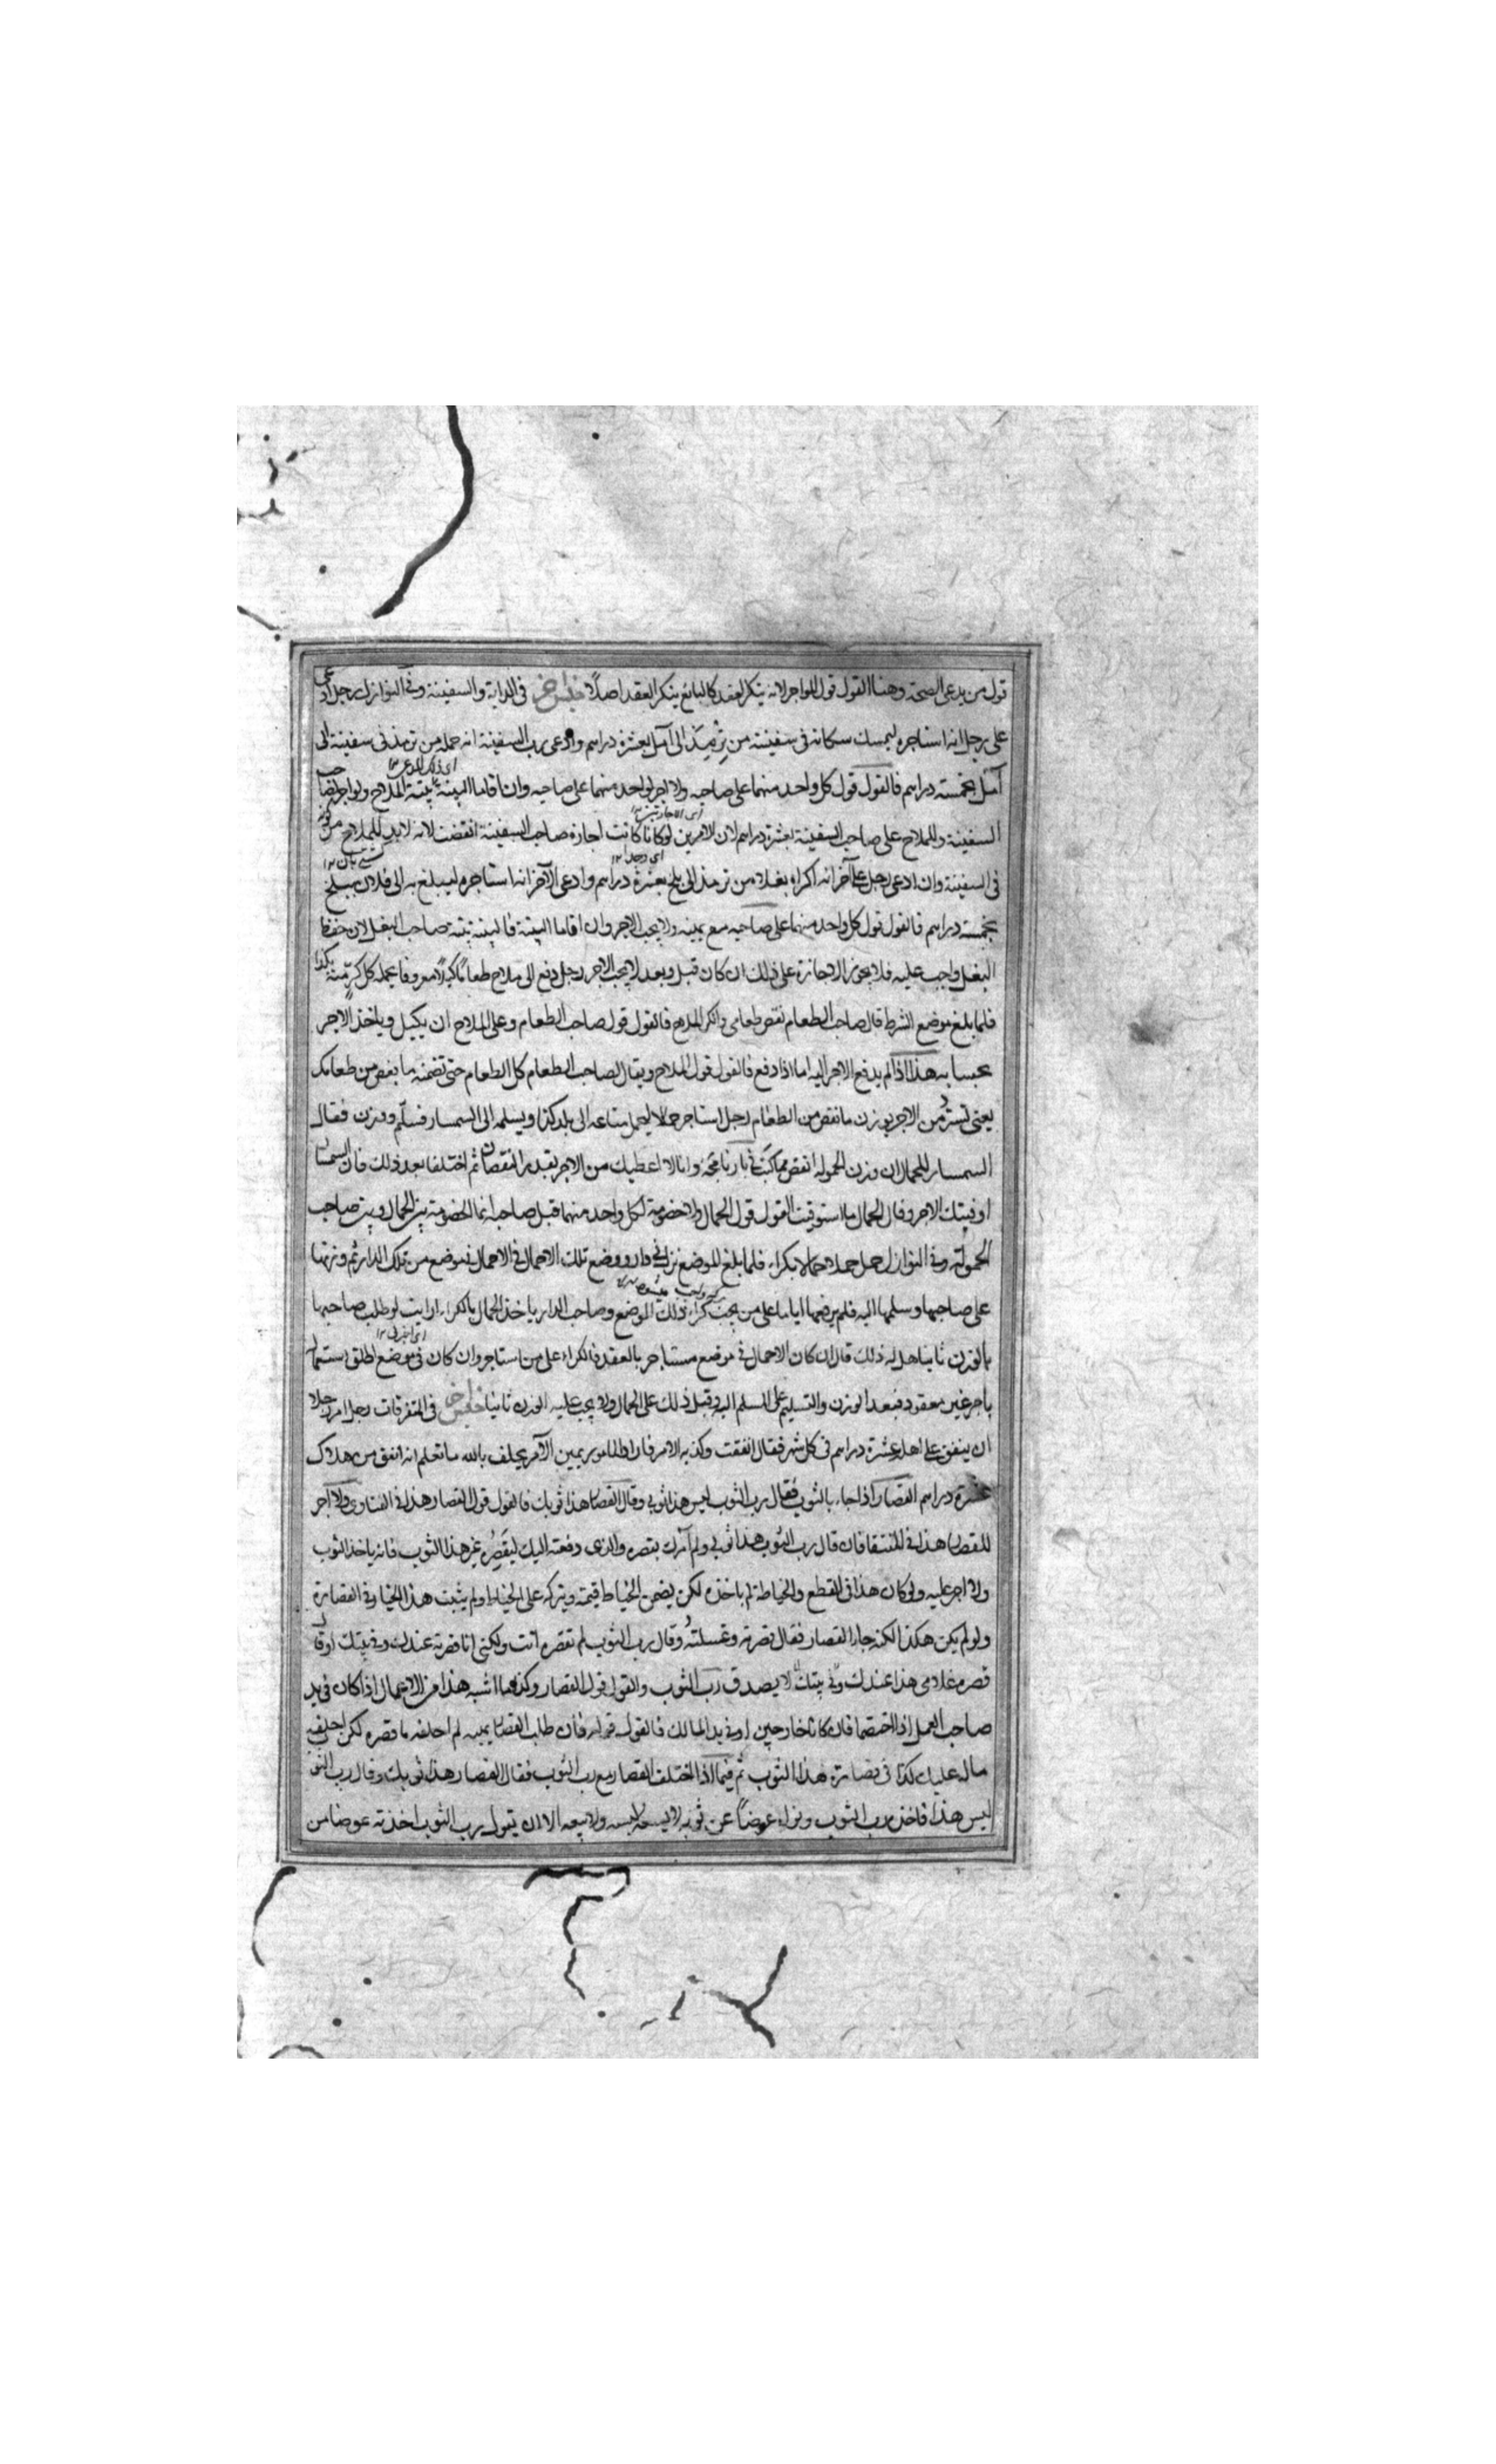 قول من يدعى الصحة وهنا القول قول المواجر لانه ينكر العقد كالبائع ينكر العقد اصلا في الدابة والسفينة وفي النوازل رجل ادعى
على رجل انه استاجره ليمسك سكانه في سفينته من ترمذ الى آمل بعشرة دراهم وادعى رب السفينة انه حمله من ترمذ في سفينته الى
آمل بخمسة دراهم فالقول قول كل واحد منهما على صاحبه ولا اجر لواحد منهما على صاحبه وان اقاما البينة بينة الملاح
السفينة وللملاح على صاحب السفينة بعشرة دراهم لان الامرين لو كانا كانت اجارة صاحب السفينة انتقضت لانه لابد للملاح من
في السفينة وان ادعى رجل على آخر انه اكراه بغلا من ترمذ الى بلخ بعشرة دراهم وادعى الآخر انه استاجره ليبلغ به الى فلان ببلخ
بخمسة دراهم فالقول قول كل واحد منهما على صاحبه مع يمينه ولا يجب الاجر وان اقاما البينة فالبينة بينة صاحب البغل لان حفظ
البغل واجب عليه فلا يجوز الاجارة على ذلك ان كان قبل وبعد لا يجب الاجر رجل دفع الى ملاح طعاما كيلا معروفا يحمله كل كر منه بكذا
فلما بلغ موضع الشرط قال صاحب الطعام نقص طعامى وانكر الملاح فالقول قول صاحب الطعام وعلى الملاح ان يكيل وياخذ الاجر
بحسابه هذا اذا لم يدفع الاجر اليه اما اذا دفع فالقول قول الملاح ويقال لصاحب الطعام كل الطعام حتى تضمنه ما نقص من طعامك
يعنى تسترد من الاجر بوزن ما نقص من الطعام رجل استاجر حمالا ليحمل متاعه الى بلد كذا ويسلمه الى السمسار فسلم ووزن فقال
السمسار للحمال ان وزن الحمولة انقص مما كتب في بارنامجه وانا لا اعطيك من الاجر بقدر النقصان ثم اختلفا بعد ذلك فقال السمسار
اوفيتك الاجر وقال الحمال ما استوفيت القول قول الحمال ولا خصومة لكل واحد منهما قبل صاحبه انما الخصومة بين الحمال وبين صاحب
الحمولة وفي النوازل حمل حملا حمالا بكراء فلما بلغ الموضع نزل في دار ووضع تلك الاحمال في موضع من تلك الدار ثم وزنها
على صاحبها وسلمها اليه فلم يرفعها اياما على من يجب كراء ذلك الموضع وصاحب الدار ياخذ الحمال بالكراء ارايت لو طلب صاحبها
بالوزن ثانيا هل له ذلك قال ان كان الاحمال في موضع مستاجر بالعقد فالكراء على من استاجر وان كان في موضع اطلق
باجر غير معقود فبعد الوزن والتسليم على المسلم اليه وقبل ذلك على الحمال ولا يجب عليه الوزن ثانيا في المتفرقات رجل امر رجلا
ان ينفق على اهله عشرة دراهم في كل شهر فقال انفقت وكذبه الآمر فان المامور يمين الآمر يحلف بالله ما تعلم انه انفق من
عشرة دراهم القصار اذا جاء بالثوب فقال رب الثوب ليس هذا ثوبي وقال القصار هذا ثوبك فالقول قول القصار هذا في الفتاوى ولا اجر
للقصار هذا في المنتقى فان قال رب الثوب هذا ثوبي ولم آمرك بقصره والذى دفعته اليك ليقصره غير هذا الثوب فانه ياخذ الثوب
ولا اجر عليه ولو كان هذا في القطع والخياطة لم ياخذه لكن يضمن الخياط قيمته ويتركه على الخياط ولم يثبت هذا الخيار في القصارة
ولو لم يكن هكذا لكنه جاء القصار فقال قصرته وغسلته وقال رب الثوب لم تقصره انت ولكنى انا قصرته عندك وفي بيتك او قال
قصره غلامى هذا عندك وفي بيتك لا يصدق رب الثوب والقول قول القصار وكذا ما اشبه هذا من الاعمال اذا كان في يد
صاحب العمل اذا اختصما فان كانا خارجين او في يد المالك فالقول قوله فان طلب القصار يمينه لم احلفه ما قصره لكن احلفه
ماله عليك كذا في قصارة هذا الثوب ثم فيما اذا اختلف القصار مع رب الثوب فقال القصار هذا ثوبك وقال رب الثوب
ليس هذا فاخذ رب الثوب ونواه عوضا عن ثوبه لا يسعه لبسه ولا بيعه الا ان يقول رب الثوب اخذته عوضا من